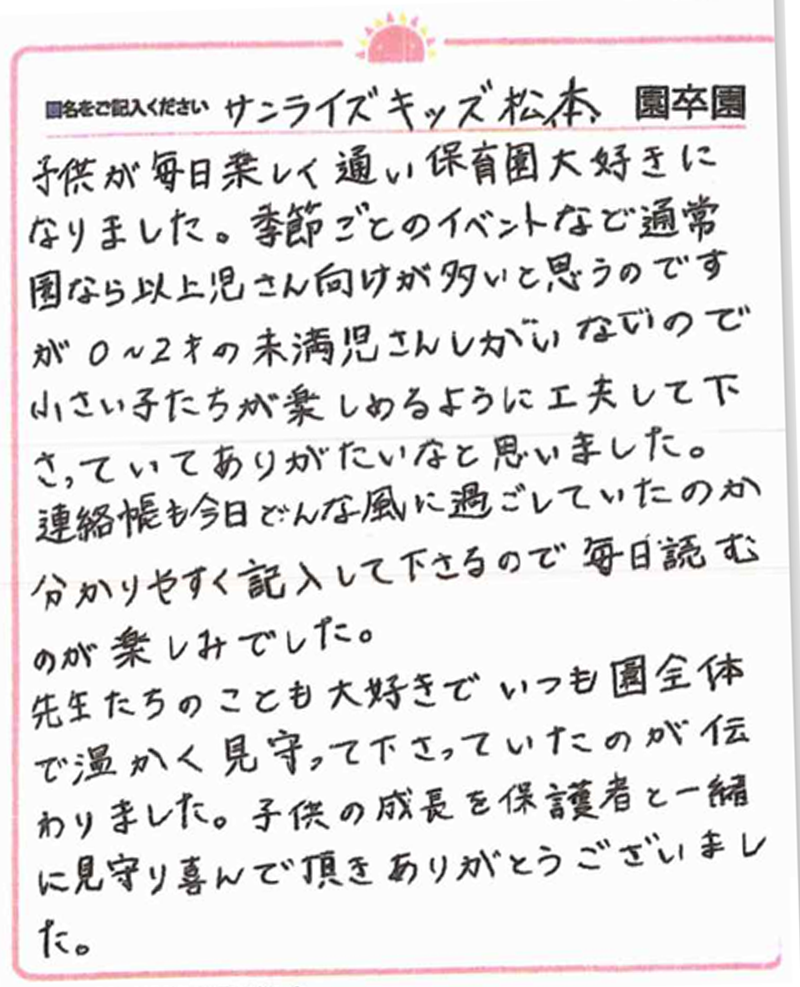 園名をご記入ください サンライズキッズ松本 園卒園
子供が毎日楽しく通い保育園大好きに
なりました。季節ごとのイベントなど通常
園なら以上児さん向けが多いと思うのです
が0~2才の未満児さんしかいないので
小さい子たちが楽しめるように工夫して下
さっていてありがたいなと思いました。
連絡帳も今日どんな風に過ごしていたのか
分かりやすく記入して下さるので毎日読む
のが楽しみでした。
先生たちのことも大好きでいつも園全体
で温かく見守って下さっていたのが伝
わりました。子供の成長を保護者と一緒
に見守り喜んで頂きありがとうございまし
た。